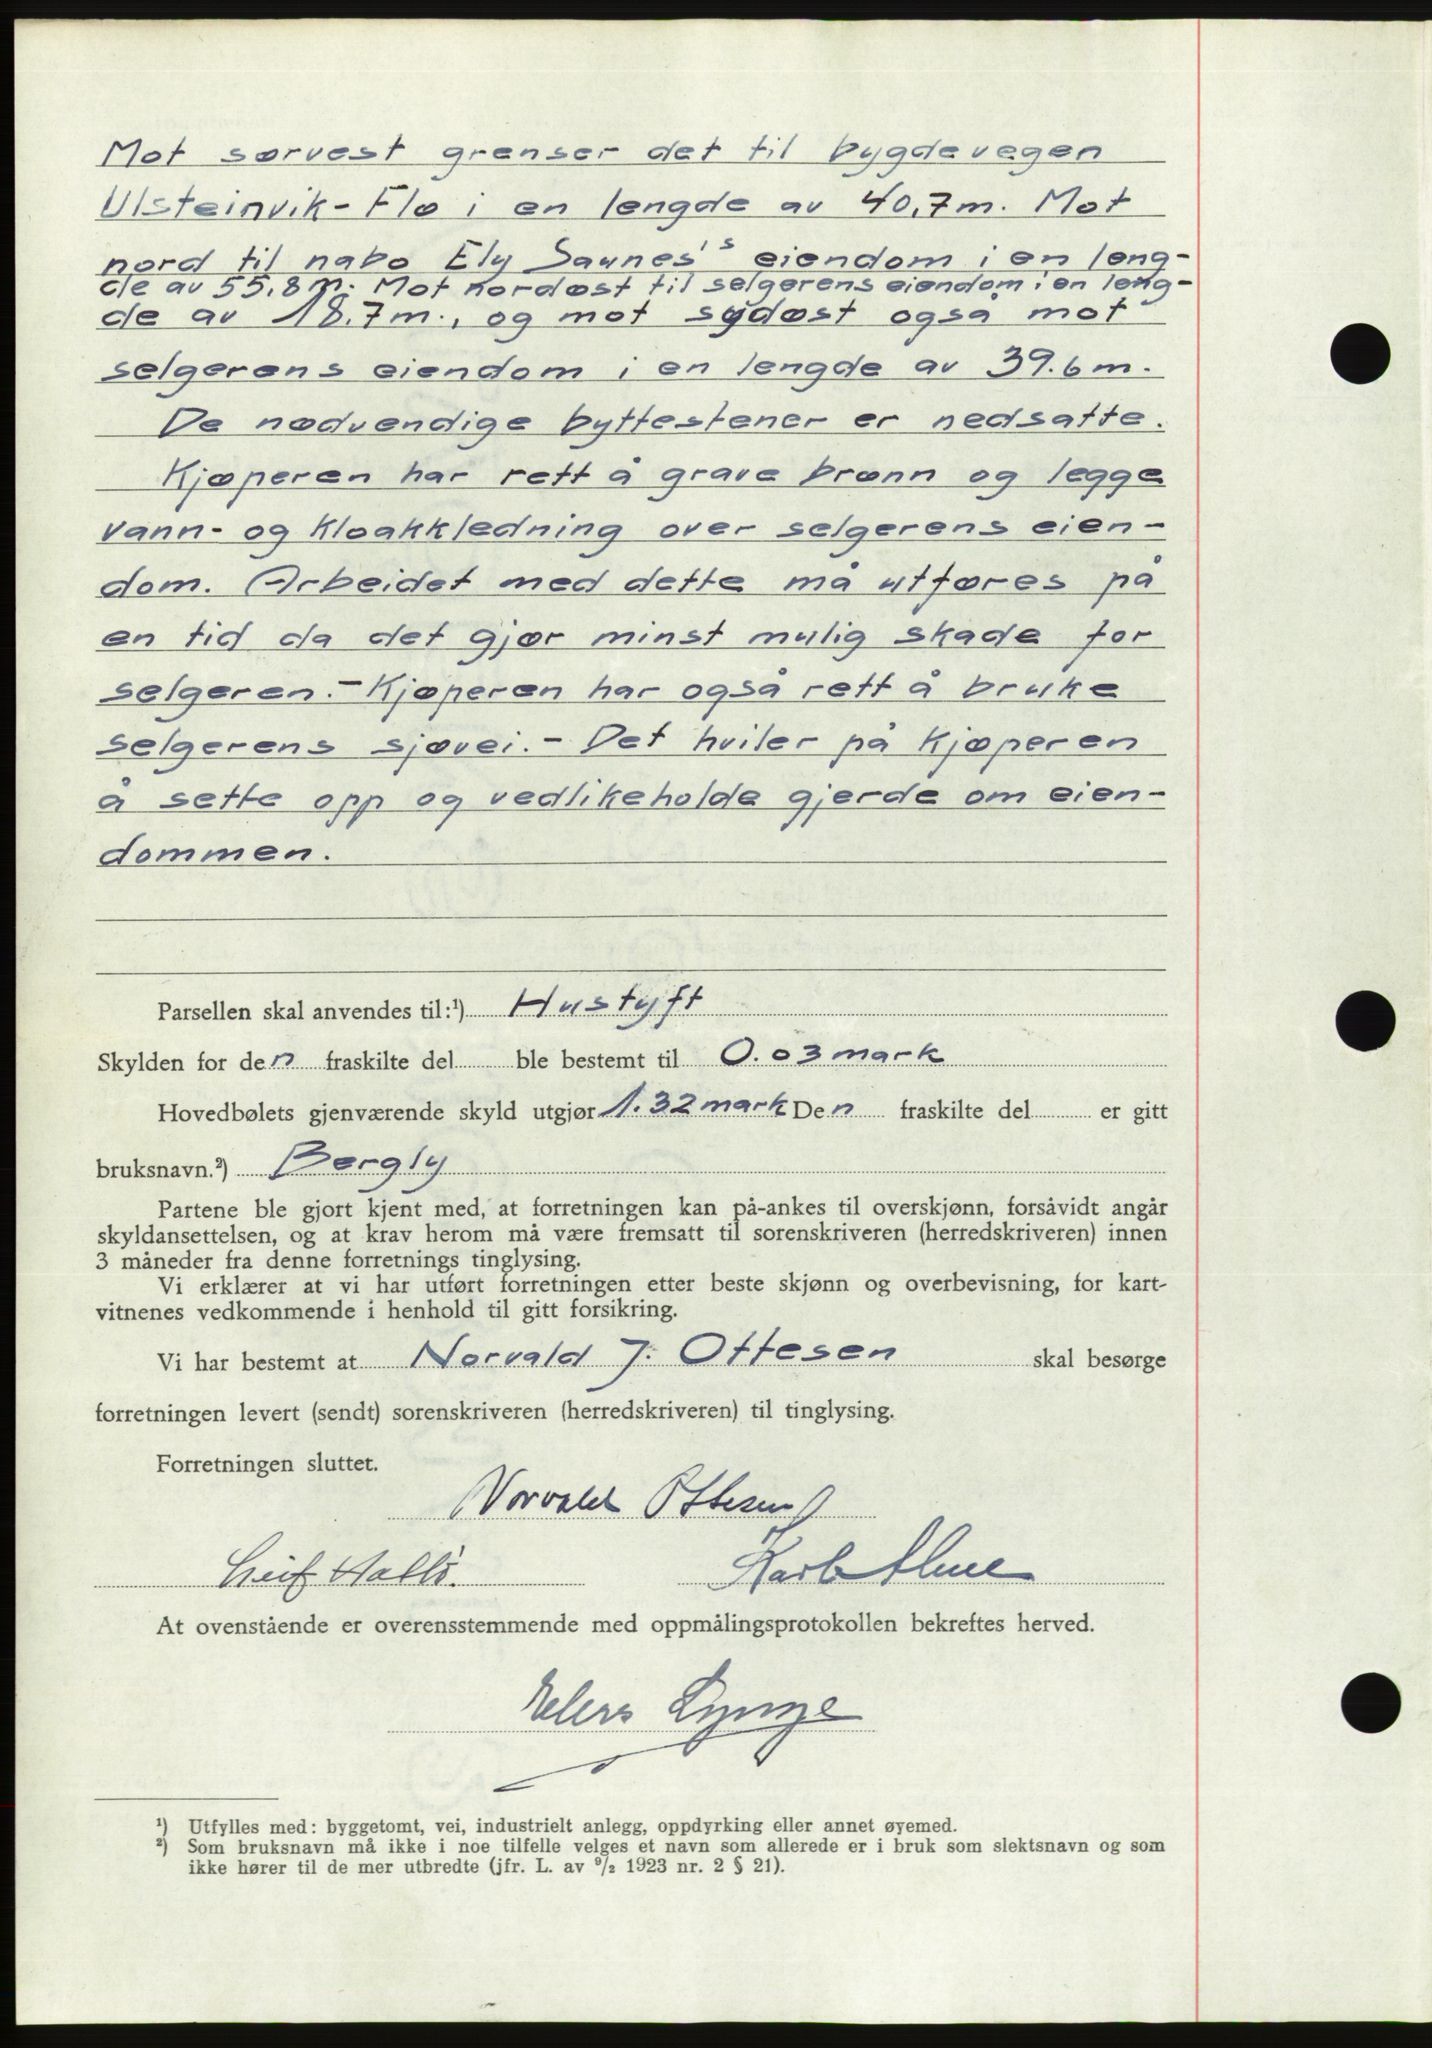 Mot sørvest grenser det til bygdevegen
Ulsteinvik-Flø i en lengde av 40,7m. Mot
nord til nabo Ely Saunes's eiendom i en leng-
de av 55,8 m. Mot nordøst til selgerens eiendom i en leng-
de av 18.7m., og mot sydøst også mot
selgerens eiendom i en lengde av 39.6m.
De nødvendige byttestener er nedsatte.
Kjøperen har rett å grave brønn og legge
vann- og kloakkledning over selgerens eien-
dom. Arbeidet med dette må utføres på
en tid da det gjør minst mulig skade for
selgeren.- Kjøperen har også rett å bruke
selgerens sjøvei.- Det hviler på kjøperen
å sette opp og vedlikeholde gjerde om eien-
dommen.
Parsellen skal anvendes til:¹) Hustyft
Skylden for den fraskilte del ble bestemt til 0.03 mark
Hovedbølets gjenværende skyld utgjør 1.32 mark Den fraskilte del er gitt
bruksnavn.²) Bergly
Partene ble gjort kjent med, at forretningen kan på-ankes til overskjønn, forsåvidt angår
skyldansettelsen, og at krav herom må være fremsatt til sorenskriveren (herredskriveren) innen
3 måneder fra denne forretnings tinglysing.
Vi erklærer at vi har utført forretningen etter beste skjønn og overbevisning, for kart-
vitnenes vedkommende i henhold til gitt forsikring.
Vi har bestemt at Norvald J. Ottesen skal besørge
forretningen levert (sendt) sorenskriveren (herredskriveren) til tinglysing.
Forretningen sluttet.
Norvald Ottesen
Leif Hallö. Karl
At ovenstående er overensstemmende med oppmålingsprotokollen bekreftes herved.
Elers Lynge
¹) Utfylles med: byggetomt, vei, industrielt anlegg, oppdyrking eller annet øyemed.
²) Som bruksnavn må ikke i noe tilfelle velges et navn som allerede er i bruk som slektsnavn og som
ikke hører til de mer utbredte (jfr. L. av ⁹/₂ 1923 nr. 2 § 21).